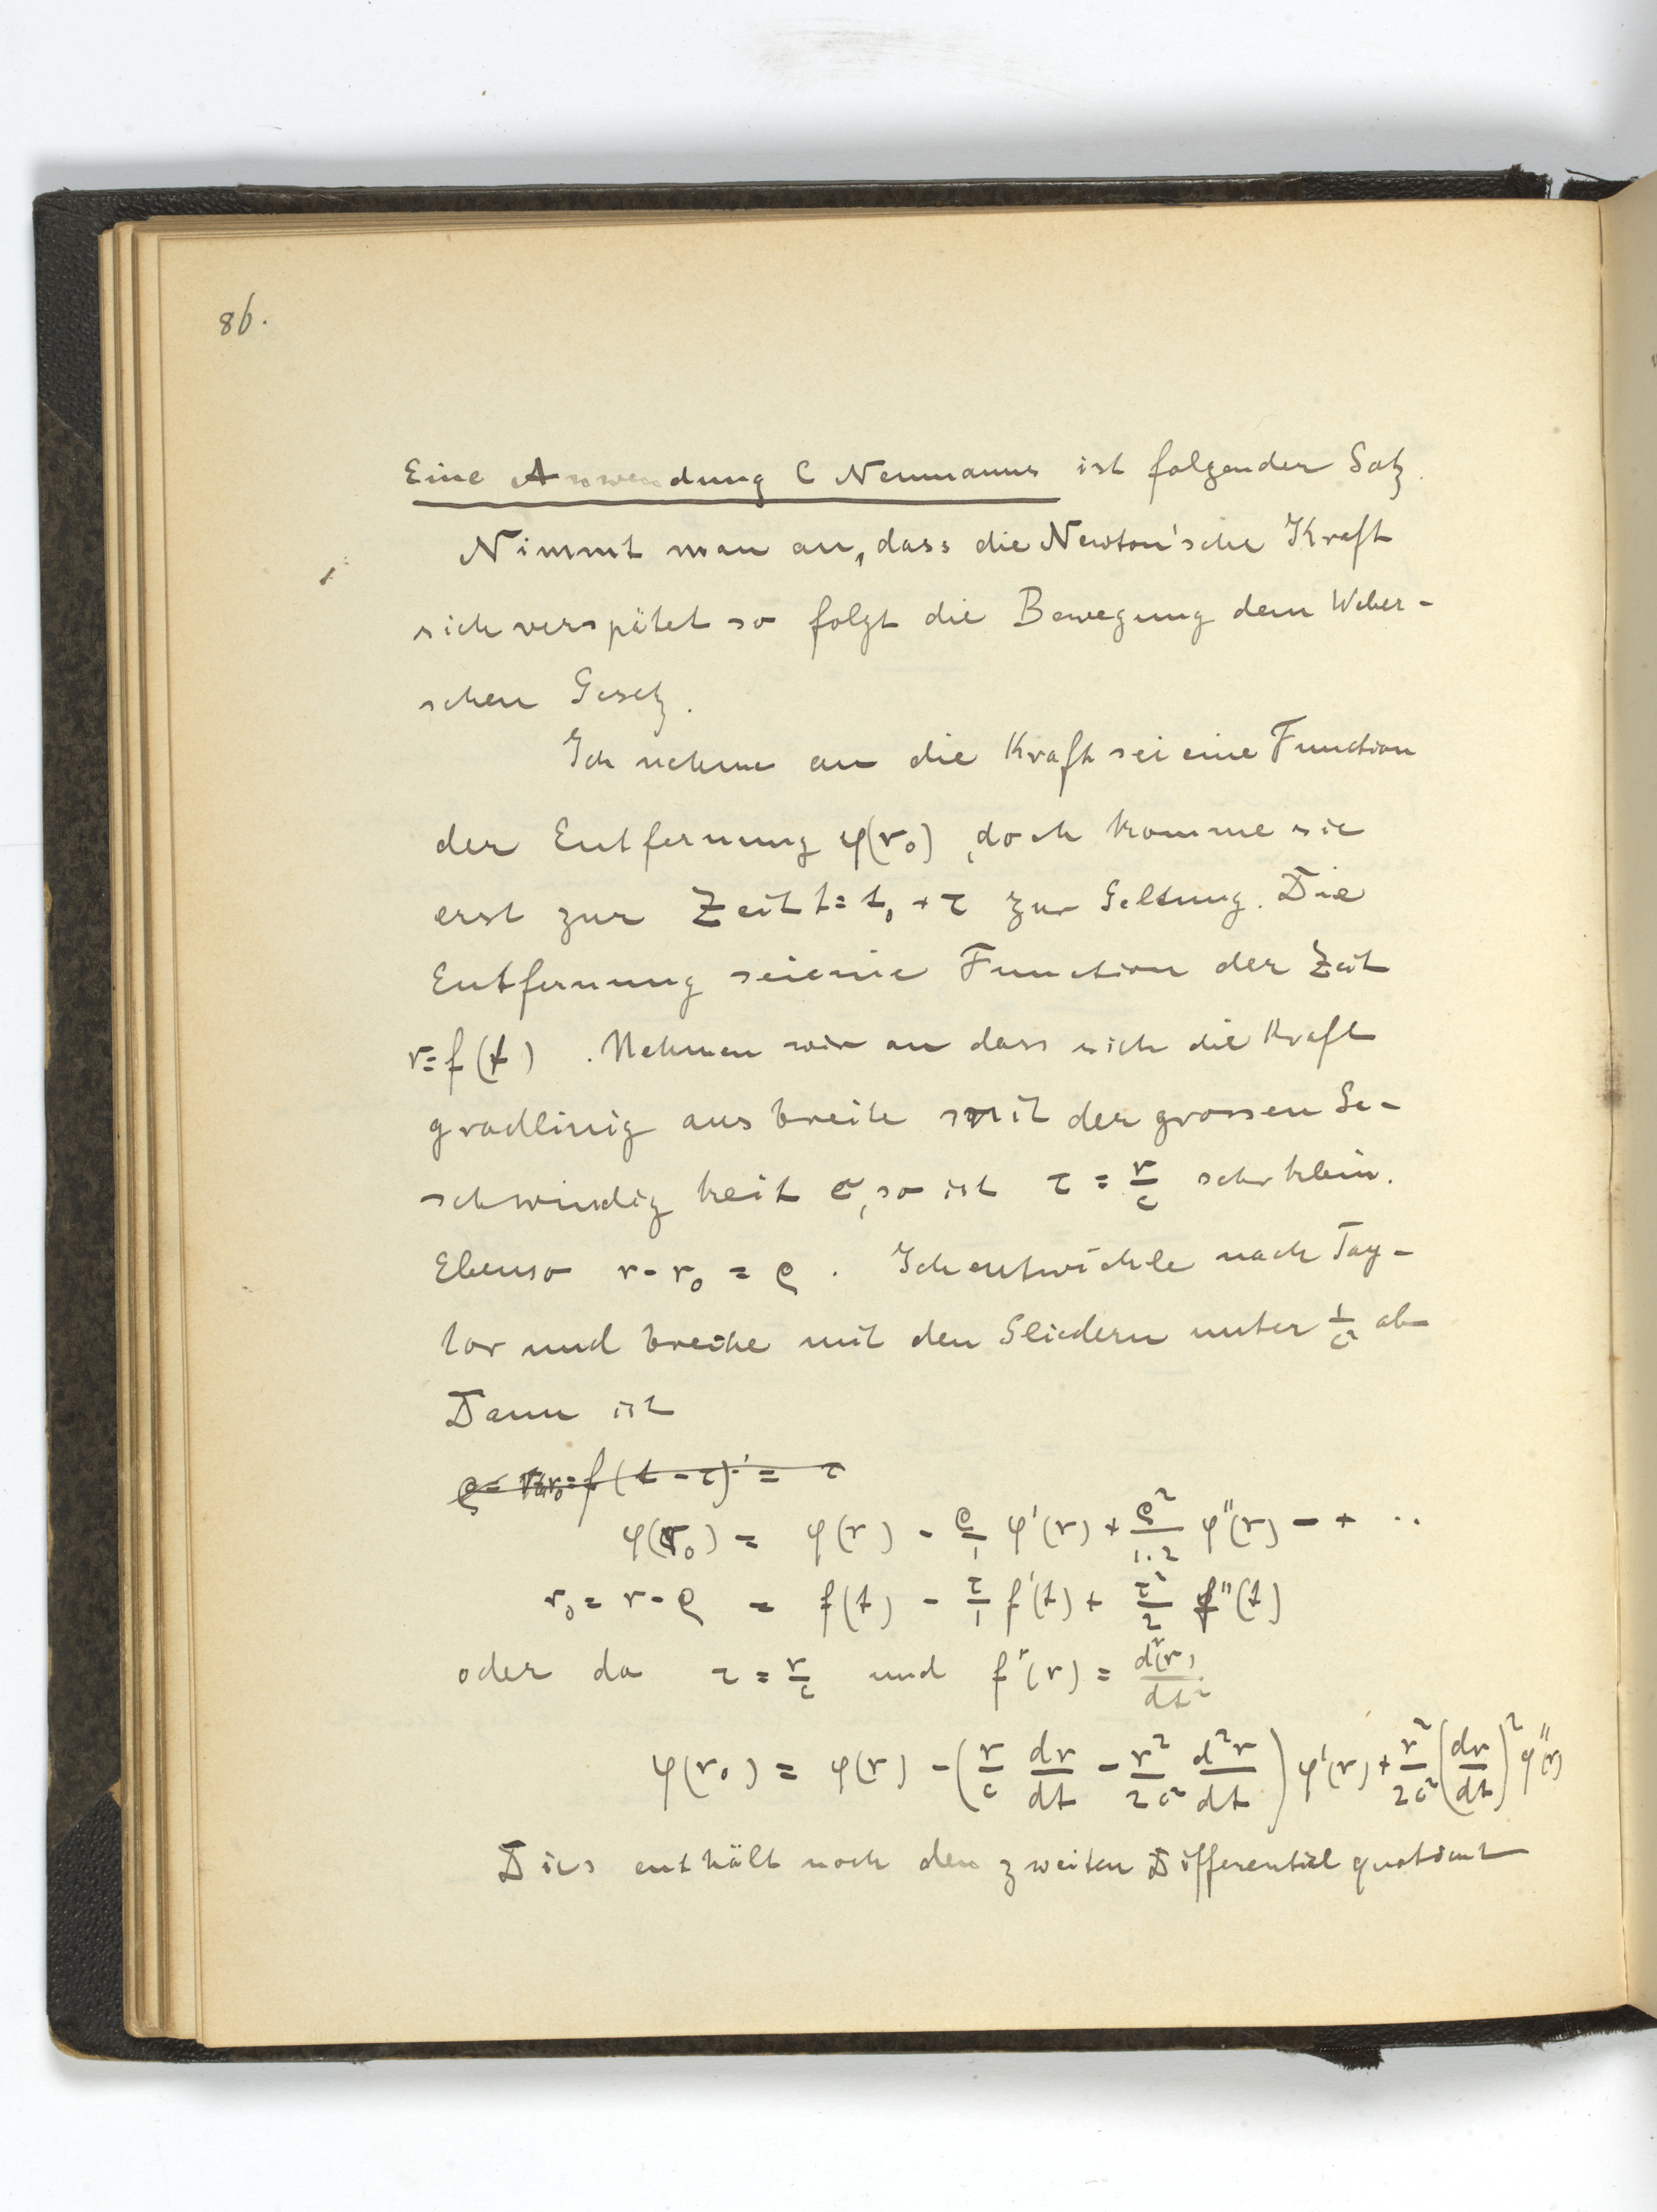 86.
Eine Anwendung C Neumanns ist folgender Satz.
Nimmt man an, dass die Newton'sche Kraft
sich verspätet so folgt die Bewegung dem Weber-
schen Gesetz.
Ich nehme an die Kraft sei eine Function
der Entfernung φ(r₀), doch komme sie
erst zur Zeit t = t₀ + τ zur Geltung. Die
Entfernung sei eine Function der Zeit
r = f(t). Nehmen wir an dass sich die Kraft
gradlinig ausbreite mit der grossen Ge-
schwindigkeit c, so ist τ = r/c sehr klein.
Ebenso r - r₀ = ρ. Ich entwickle nach Tay-
lor und breche mit den Gliedern unter 1/c² ab
Dann ist
φ(r₀) = φ(r) - ρ/1 φ'(r) + ρ²/1.2 φ''(r) - + ..
r₀ = r - ρ = f(t) - τ/1 f'(t) + τ²/2 f''(t)
oder da τ = r/c und f''(r) = d²(r)/dt²
φ(r₀) = φ(r) - (r/c dr/dt - r²/2c² d²r/dt) φ'(r) + r²/2c² (dr/dt)² φ''(r)
Dies enthält noch den zweiten Differentialquotient